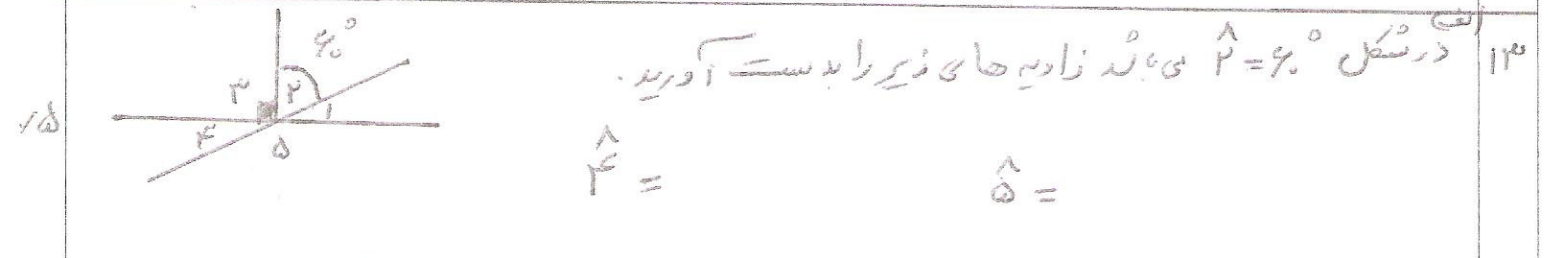 ۱۳ الف) در شکل ۶۰° = ۲̂ می باشد زاویه های زیر را بدست آورید.
۵̂ =
۴̂ =
۶۰°
۳ ۲ ۱
۴ ۵
/۵